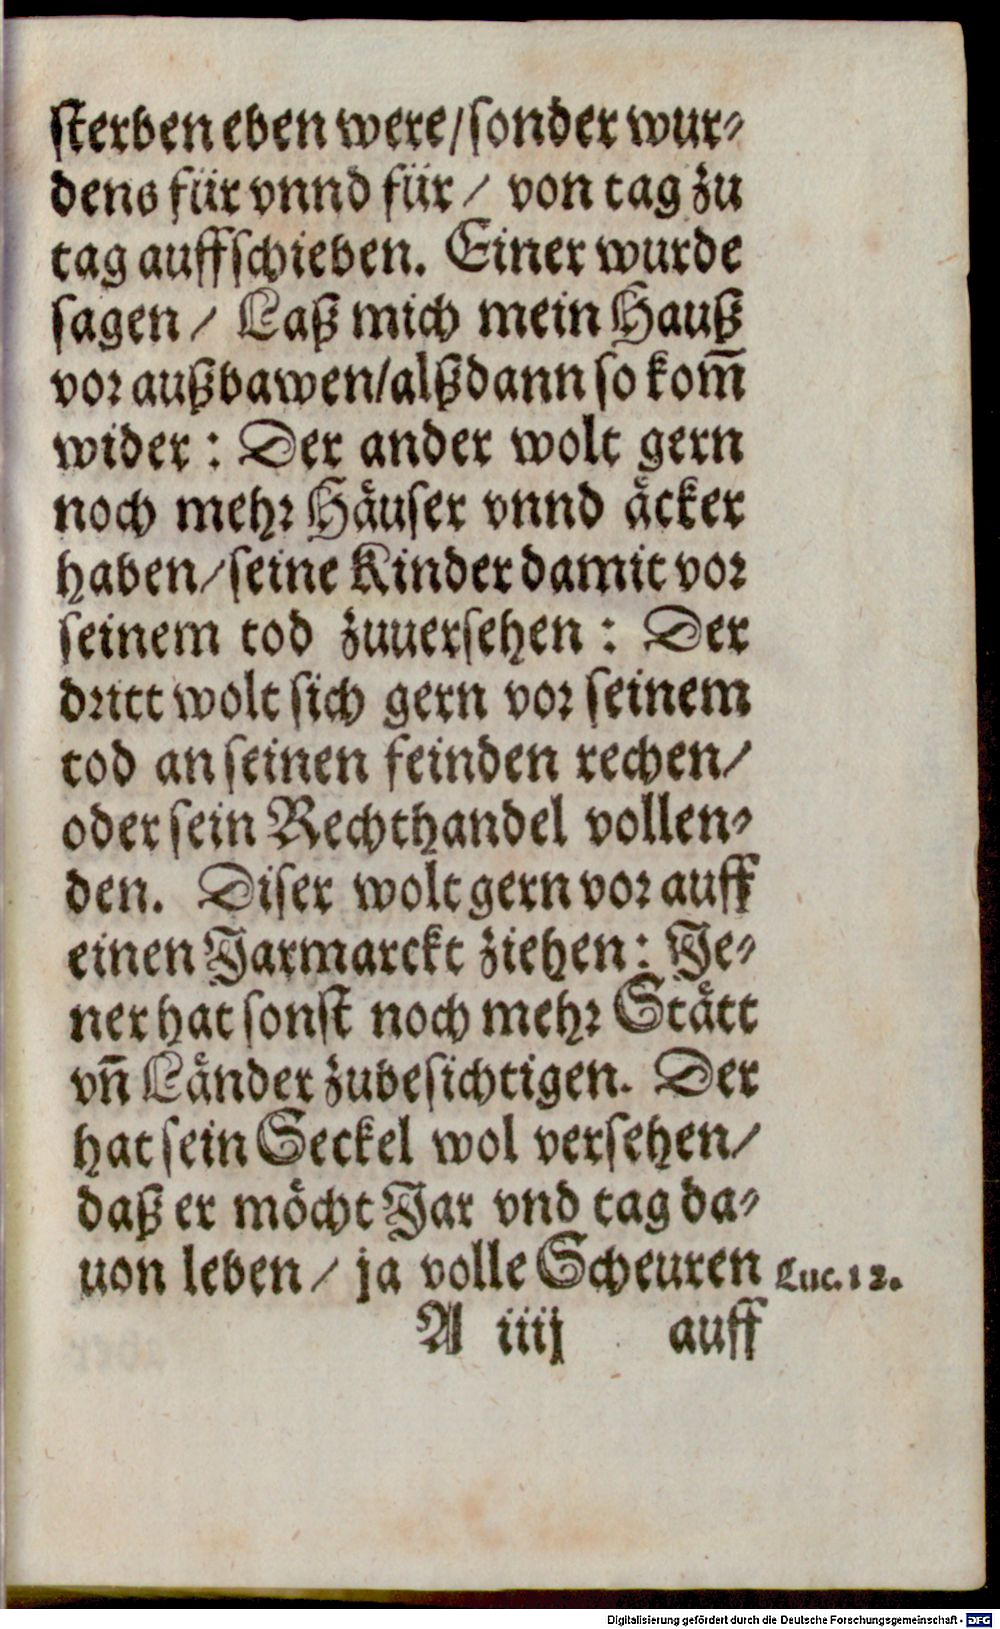 sterben eben were/ sonder wur-
dens für vnnd für/ von tag zu
tag auffschieben. Einer wurde
sagen/ Laß mich mein Hauß
vor außbawen/ alßdann so kom̅
wider: Der ander wolt gern
noch mehr Häuser vnnd äcker
haben/ seine Kinder damit vor
seinem tod zuuersehen: Der
dritt wolt sich gern vor seinem
tod an seinen feinden rechen/
oder sein Rechthandel vollen-
den. Diser wolt gern vor auff
einen Jarmarckt ziehen: Je-
ner hat sonst noch mehr Stätt
vn̅ Länder zubesichtigen. Der
hat sein Seckel wol versehen/
daß er möcht Jar vnd tag da-
uon leben/ ja volle Scheuren Luc. 12.
A iiij auff
Digitalisierung gefördert durch die Deutsche Forschungsgemeinschaft - DFG